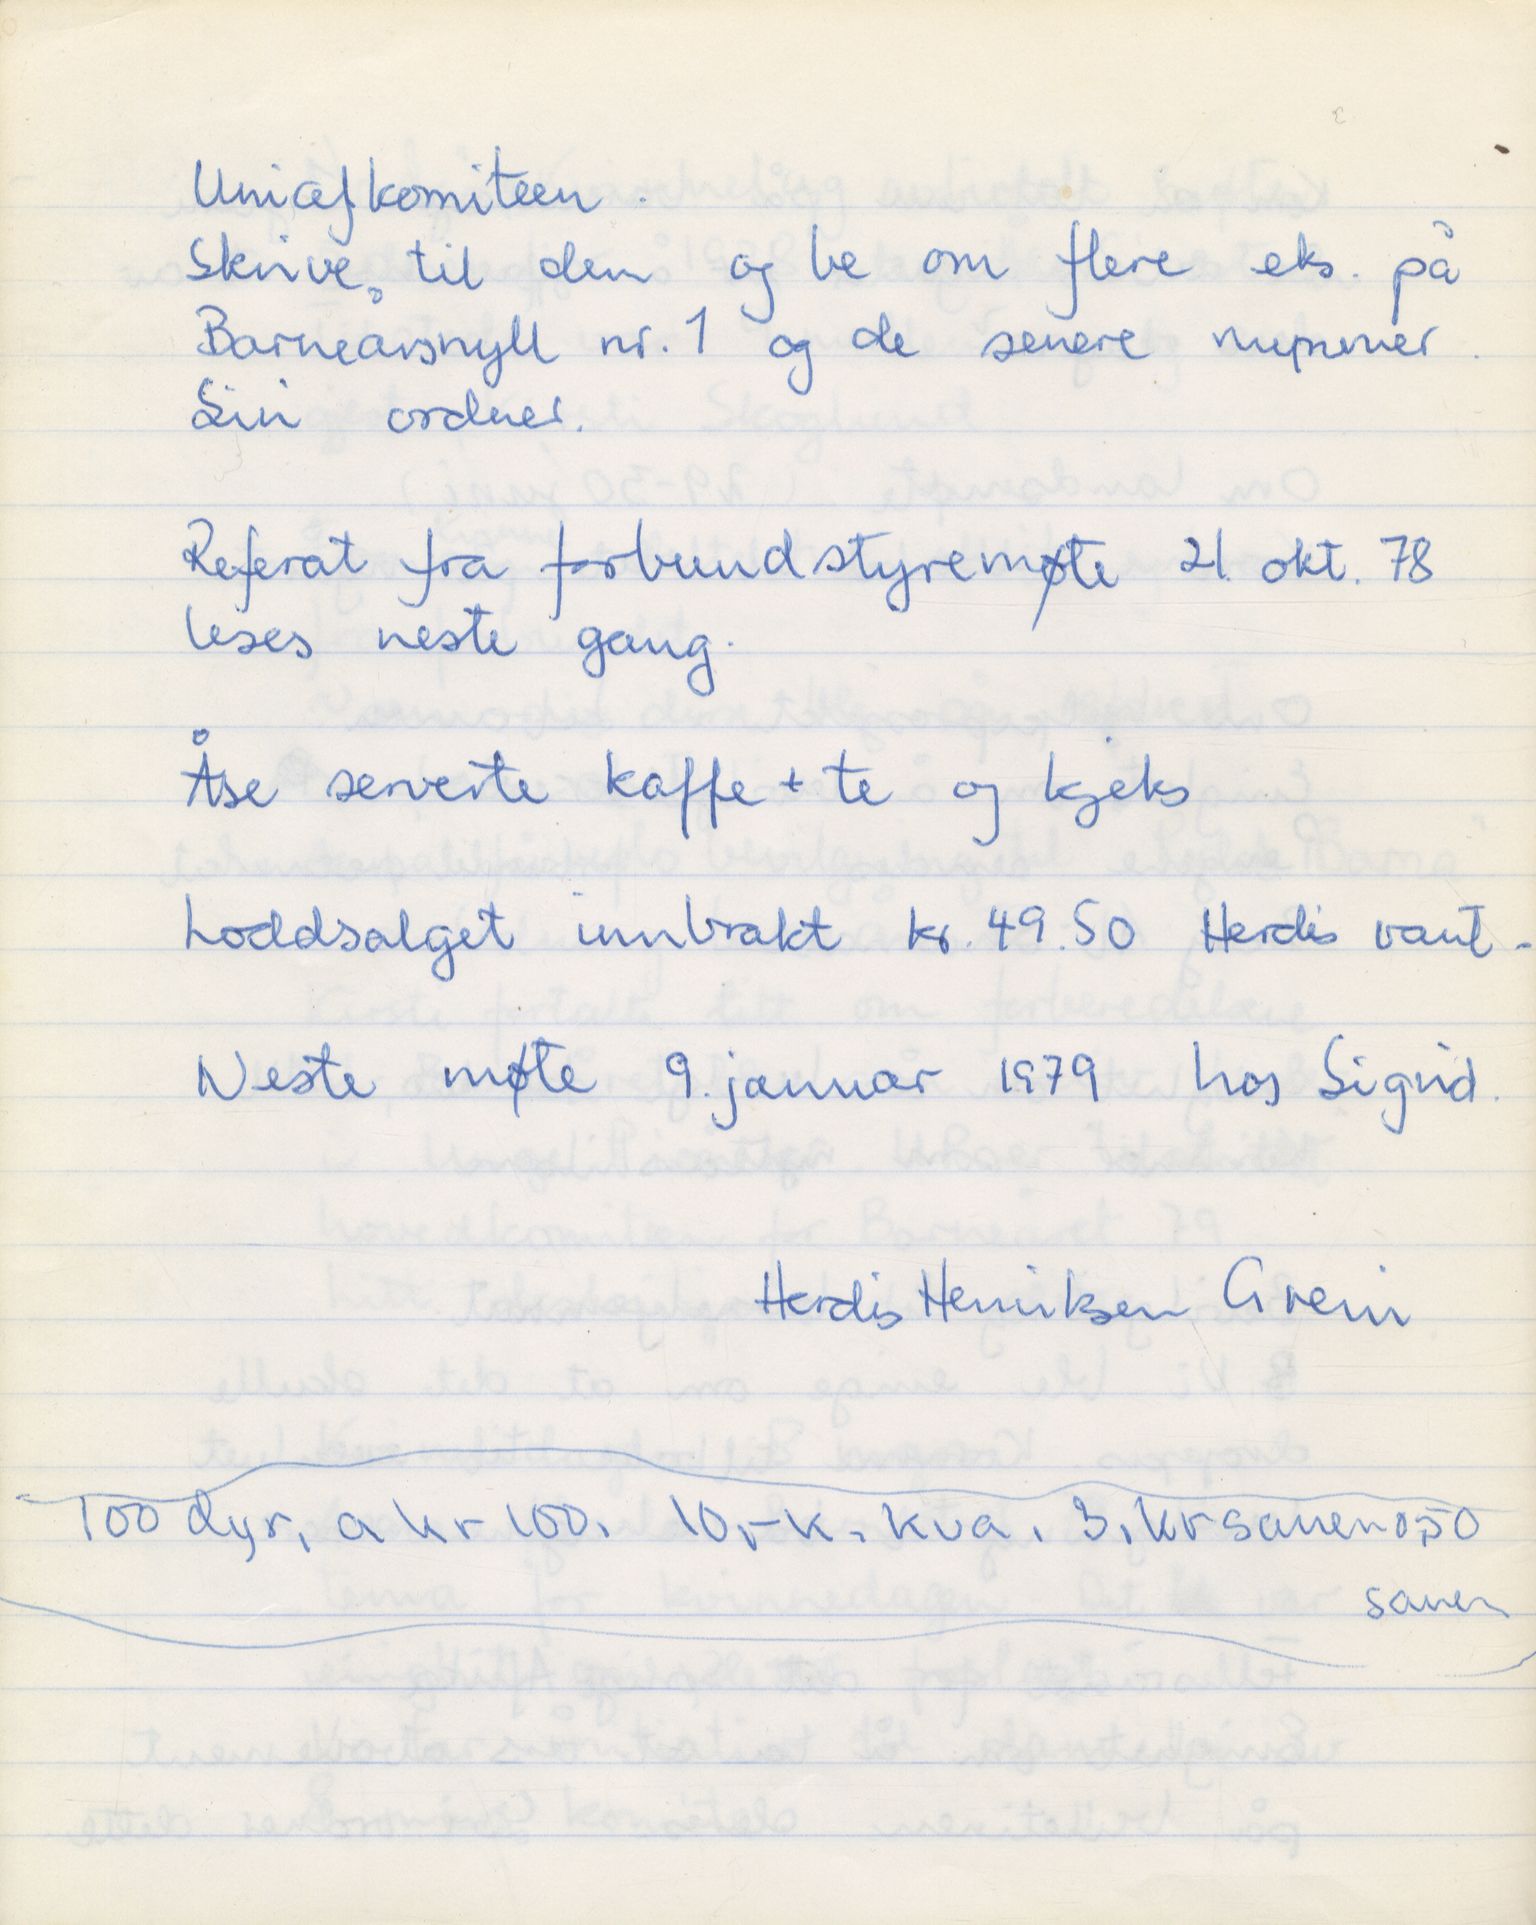 Unicefkomiteen.
Skrive til dem og be om flere eks. på
Barneårsnytt nr. 1 og de senere nummer.
Siri ordner.
Referat fra forbundstyremøte 21. okt. 78
leses neste gang.
Åse serverte kaffe + te og kjeks
Loddsalget innbrakt kr. 49.50 Herdis vant.
Neste møte 9. januar 1979 hos Sigrid.
Herdis Henriksen Greni
100 dyr, a kr 100. 10,- k. kva. 3, kr sauen 0,50
sauen